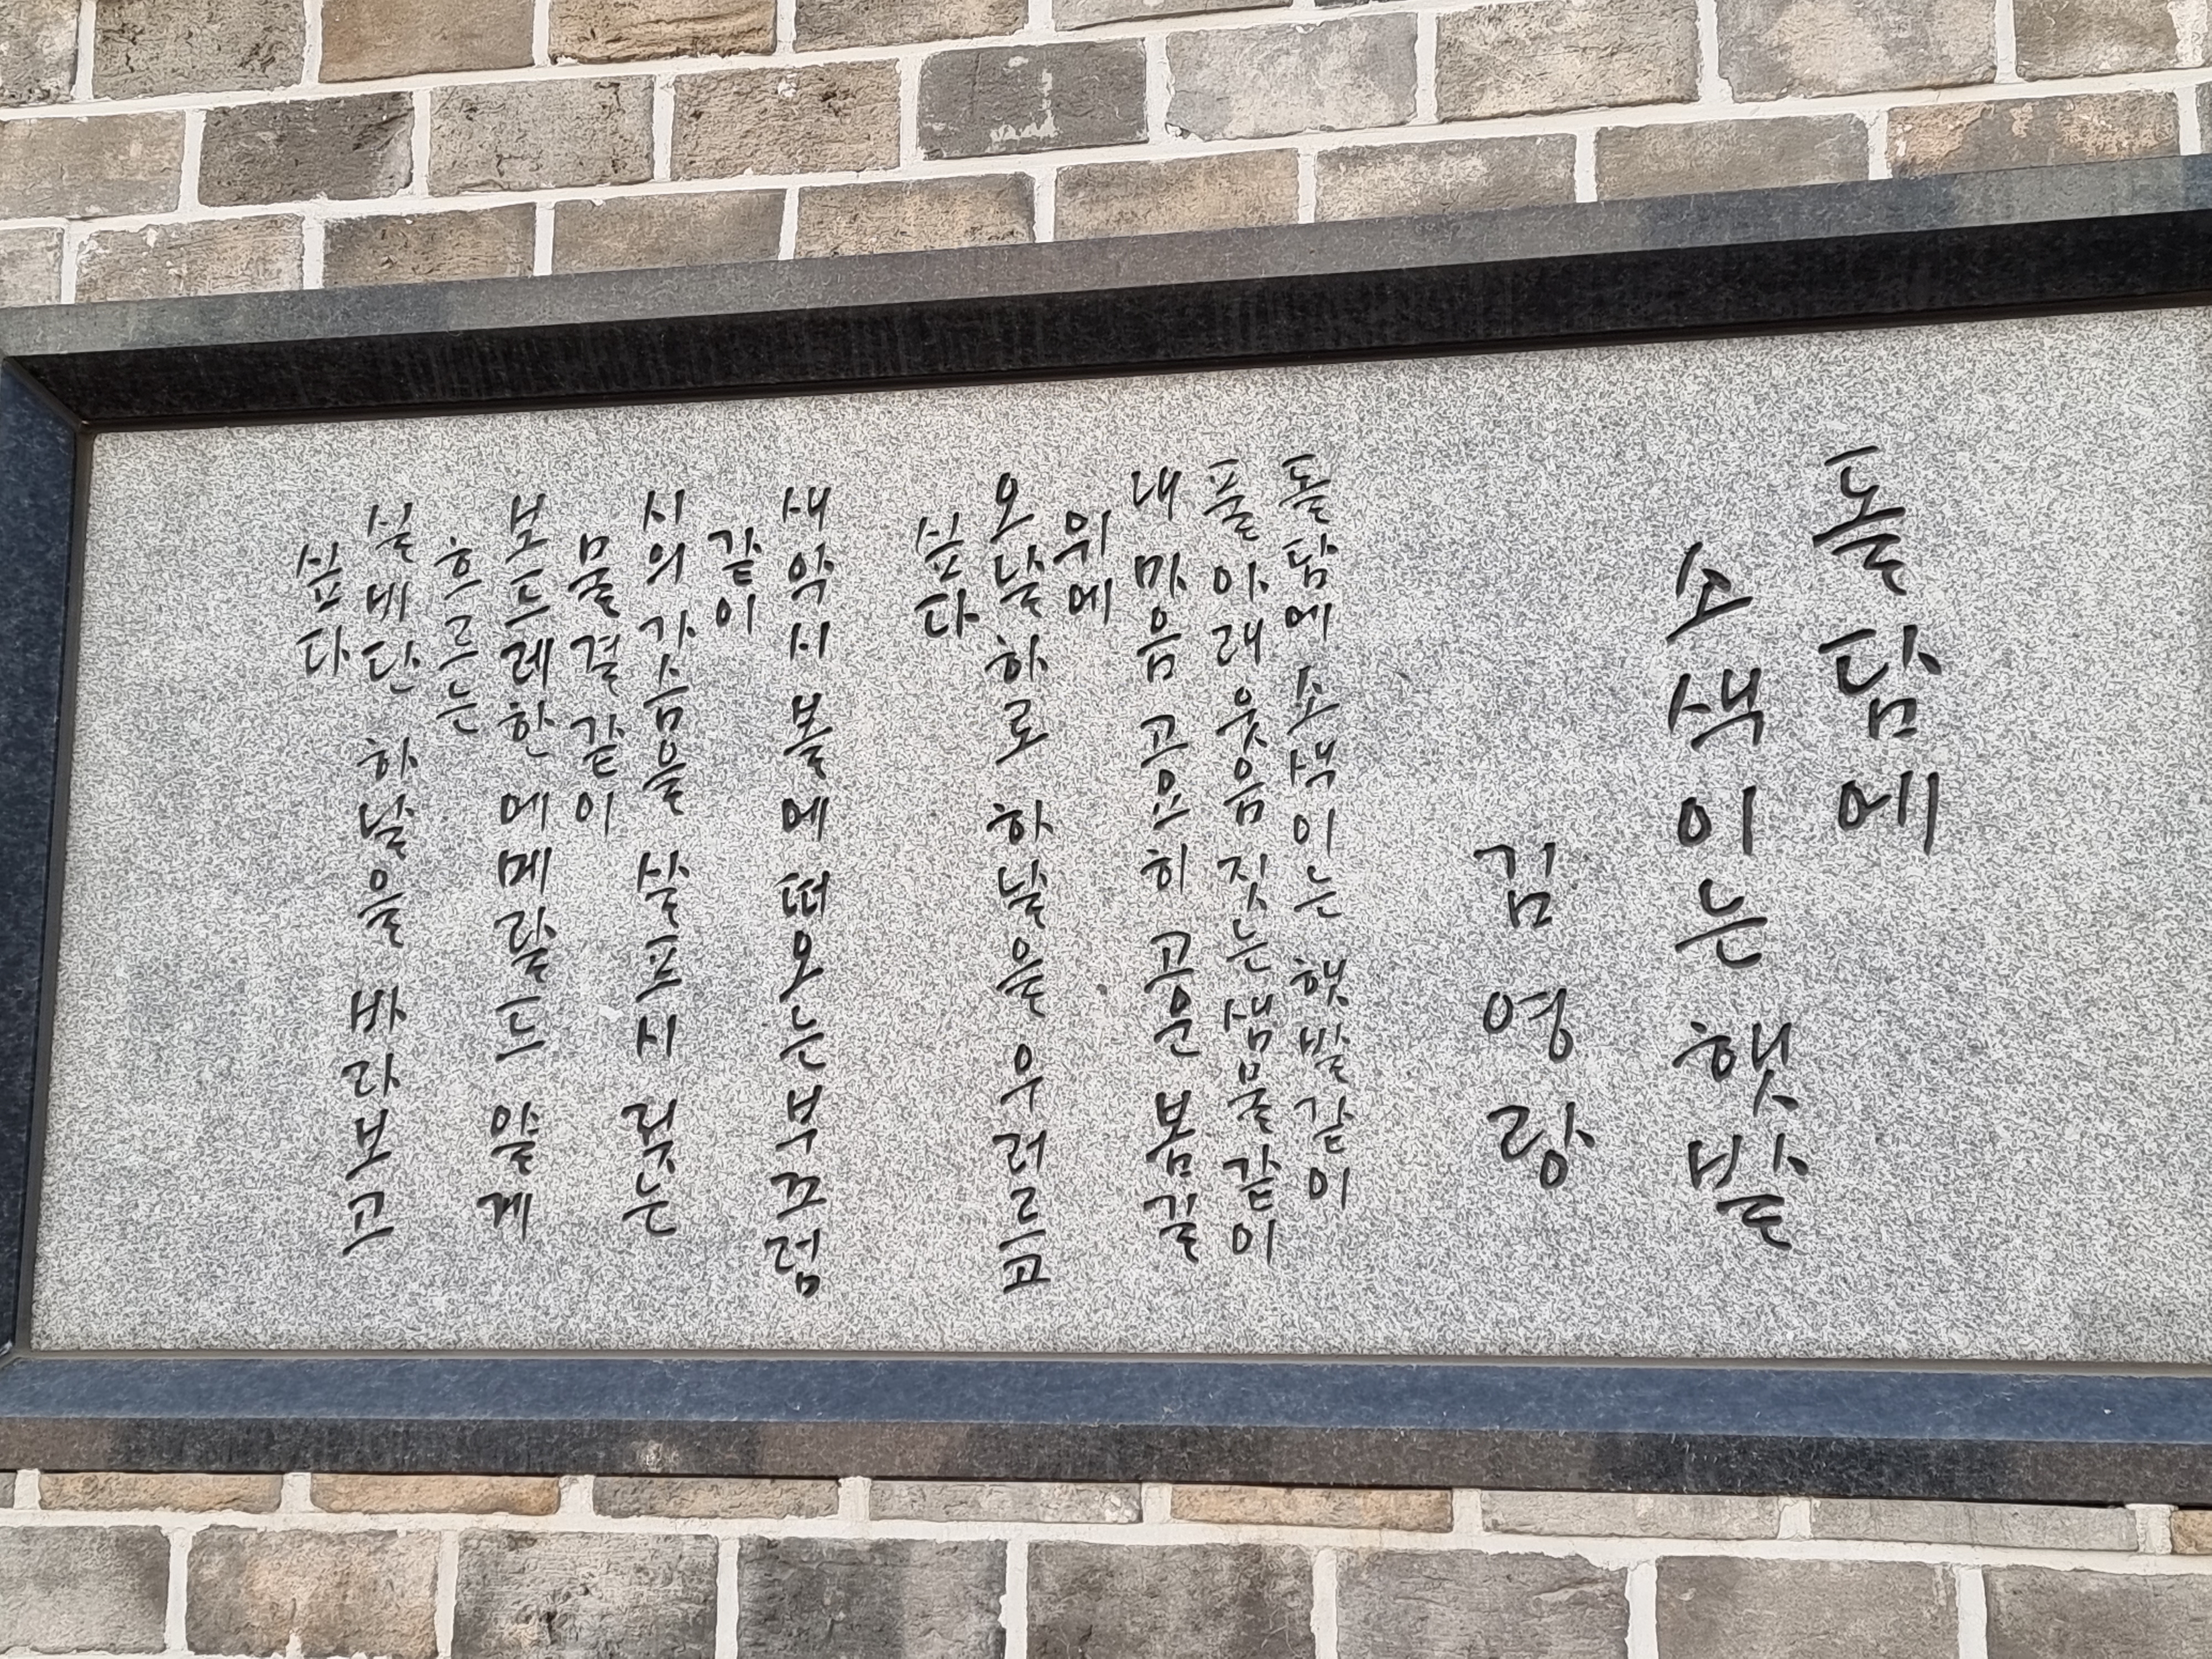 돌담에
소색이는 햇발
김영랑
돌담에 소색이는 햇발같이
풀아래 웃음 짓는 샘물같이
내마음 고요히 고운 봄길
위에
오날하로 하날을 우러르고
싶다
새악시 볼에 떠오는 부끄럼
같이
시의 가슴을 살프시 젖는
물결같이
보드레한 에메랄드 얇게
흐르는
실비단 하날을 바라보고
싶다